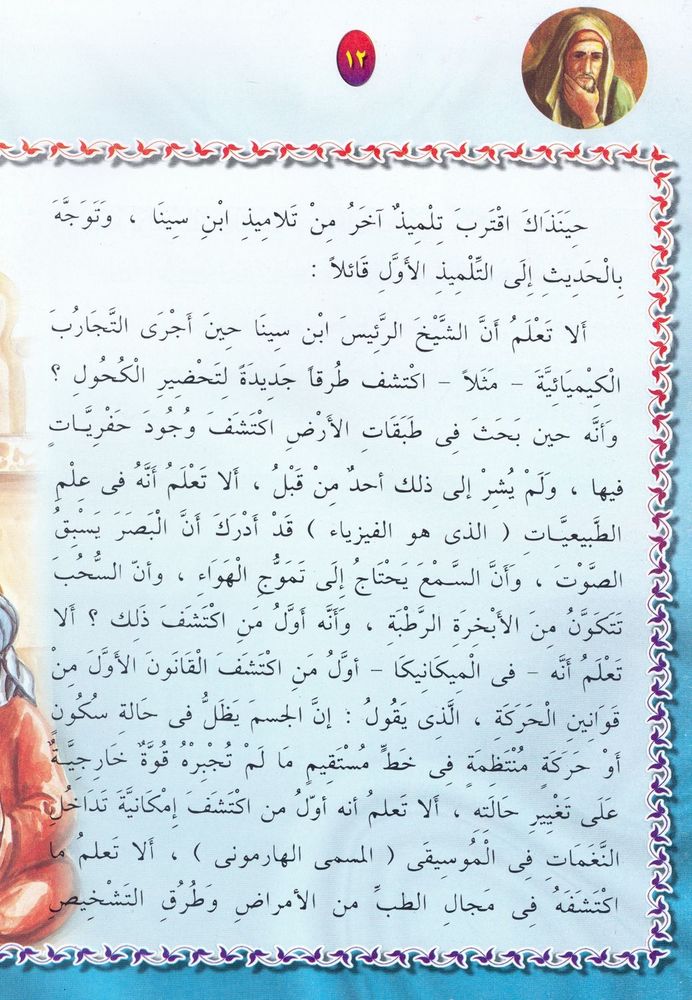 ١٢
حِينَذَاكَ اقْتَربَ تِلْمِيذٌ آخَرُ مِنْ تَلامِيذِ ابْنِ سِينَا ، وَتَوَجَّهَ
بِالْحَدِيثِ إِلَى التِّلْمِيذِ الأَوَّلِ قَائلاً :
أَلا تَعْلَمُ أَنَّ الشَّيْخَ الرَّئِيسَ ابْن سِينَا حِينَ أَجْرَى التَّجَارُبَ
الْكِيْمِيَائِيَّةَ - مَثَلاً - اكْتشف طُرقاً جَدِيدَةً لِتَحْضِيرِ الْكُحُولِ ؟
وَأنَّه حين بَحَثَ فِى طَبَقَاتِ الأَرْضِ اكْتَشَفَ وُجُودَ حَفْرِيَّـاتٍ
فيها ، وَلَمْ يُشِرْ إلى ذلك أحدٌ مِنْ قَبْلُ ، أَلا تَعْلَمُ أَنَّهُ فى عِلْمِ
الطَّبِيعيَّـاتِ ( الذى هو الفيزياء ) قَدْ أَدْرَكَ أَنَّ الْبَصَرَ يَسْبِقُ
الصَّوْتَ ، وَأَنَّ السَّـمْعَ يَحْتَاجُ إِلَى تَمَوُّجِ الْهَوَاءِ ، وأنّ السُّحُبَ
تَتَكَوَّنُ مِنَ الأَبْخرَةِ الرَّطْبَةِ ، وَأنَّه أوَّلُ مَنِ اكْتَشَفَ ذَلِك ؟ أَلا
تَعْلَمُ أنَّه - فى الْمِيكَانِيكَا - أوَّلُ مَنِ اكْتَشَفَ الْقَانُونَ الأَوَّلَ مِنْ
قَوَانِينِ الْحَرَكَةِ ، الَّذِى يَقُولُ : إنَّ الجسمَ يَظَلُّ فى حَالةِ سُكُونٍ
أَوْ حركَةٍ مُنْتَظِمَةٍ فى خَطٍّ مُسْتَقِيمٍ مَا لَمْ تُجْبِرْهُ قُوَّةٌ خَارجيَّـةٌ
عَلَى تَغْيِيرِ حَالَتِه ، أَلا تَعلمُ أنه أوّلُ من اكْتَشَفَ إِمْكَانيَّةَ تَدَاخُلِ
النَّغَمَاتِ فِى الْمُوسِيقَى ( المسمى الهارمونى ) ، أَلا تَعلمُ ما
اكْتَشَفَهُ فِى مَجالِ الطبِّ من الأمراضِ وَطُرُقِ التَشْخِيصِ